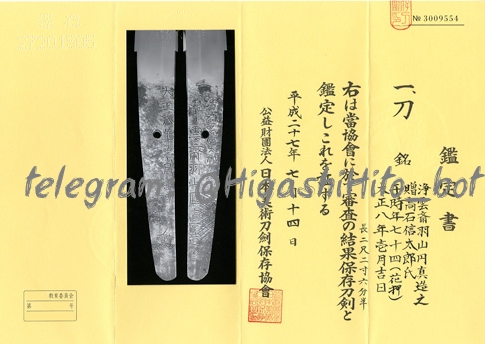 № 3009554
鑑定書
一、刀 銘
浄雲斎羽山円真造之
贈高石信太郎氏
于時年七十四(花押)
大正八年壱月吉日
長二尺二寸六分半
右は當協會に於て審査の結果保存刀剣と
鑑定しこれを証する
平成二十七年七月十四日
公益財團法人日本美術刀劍保存協會
telegram @HigashiHito_bot